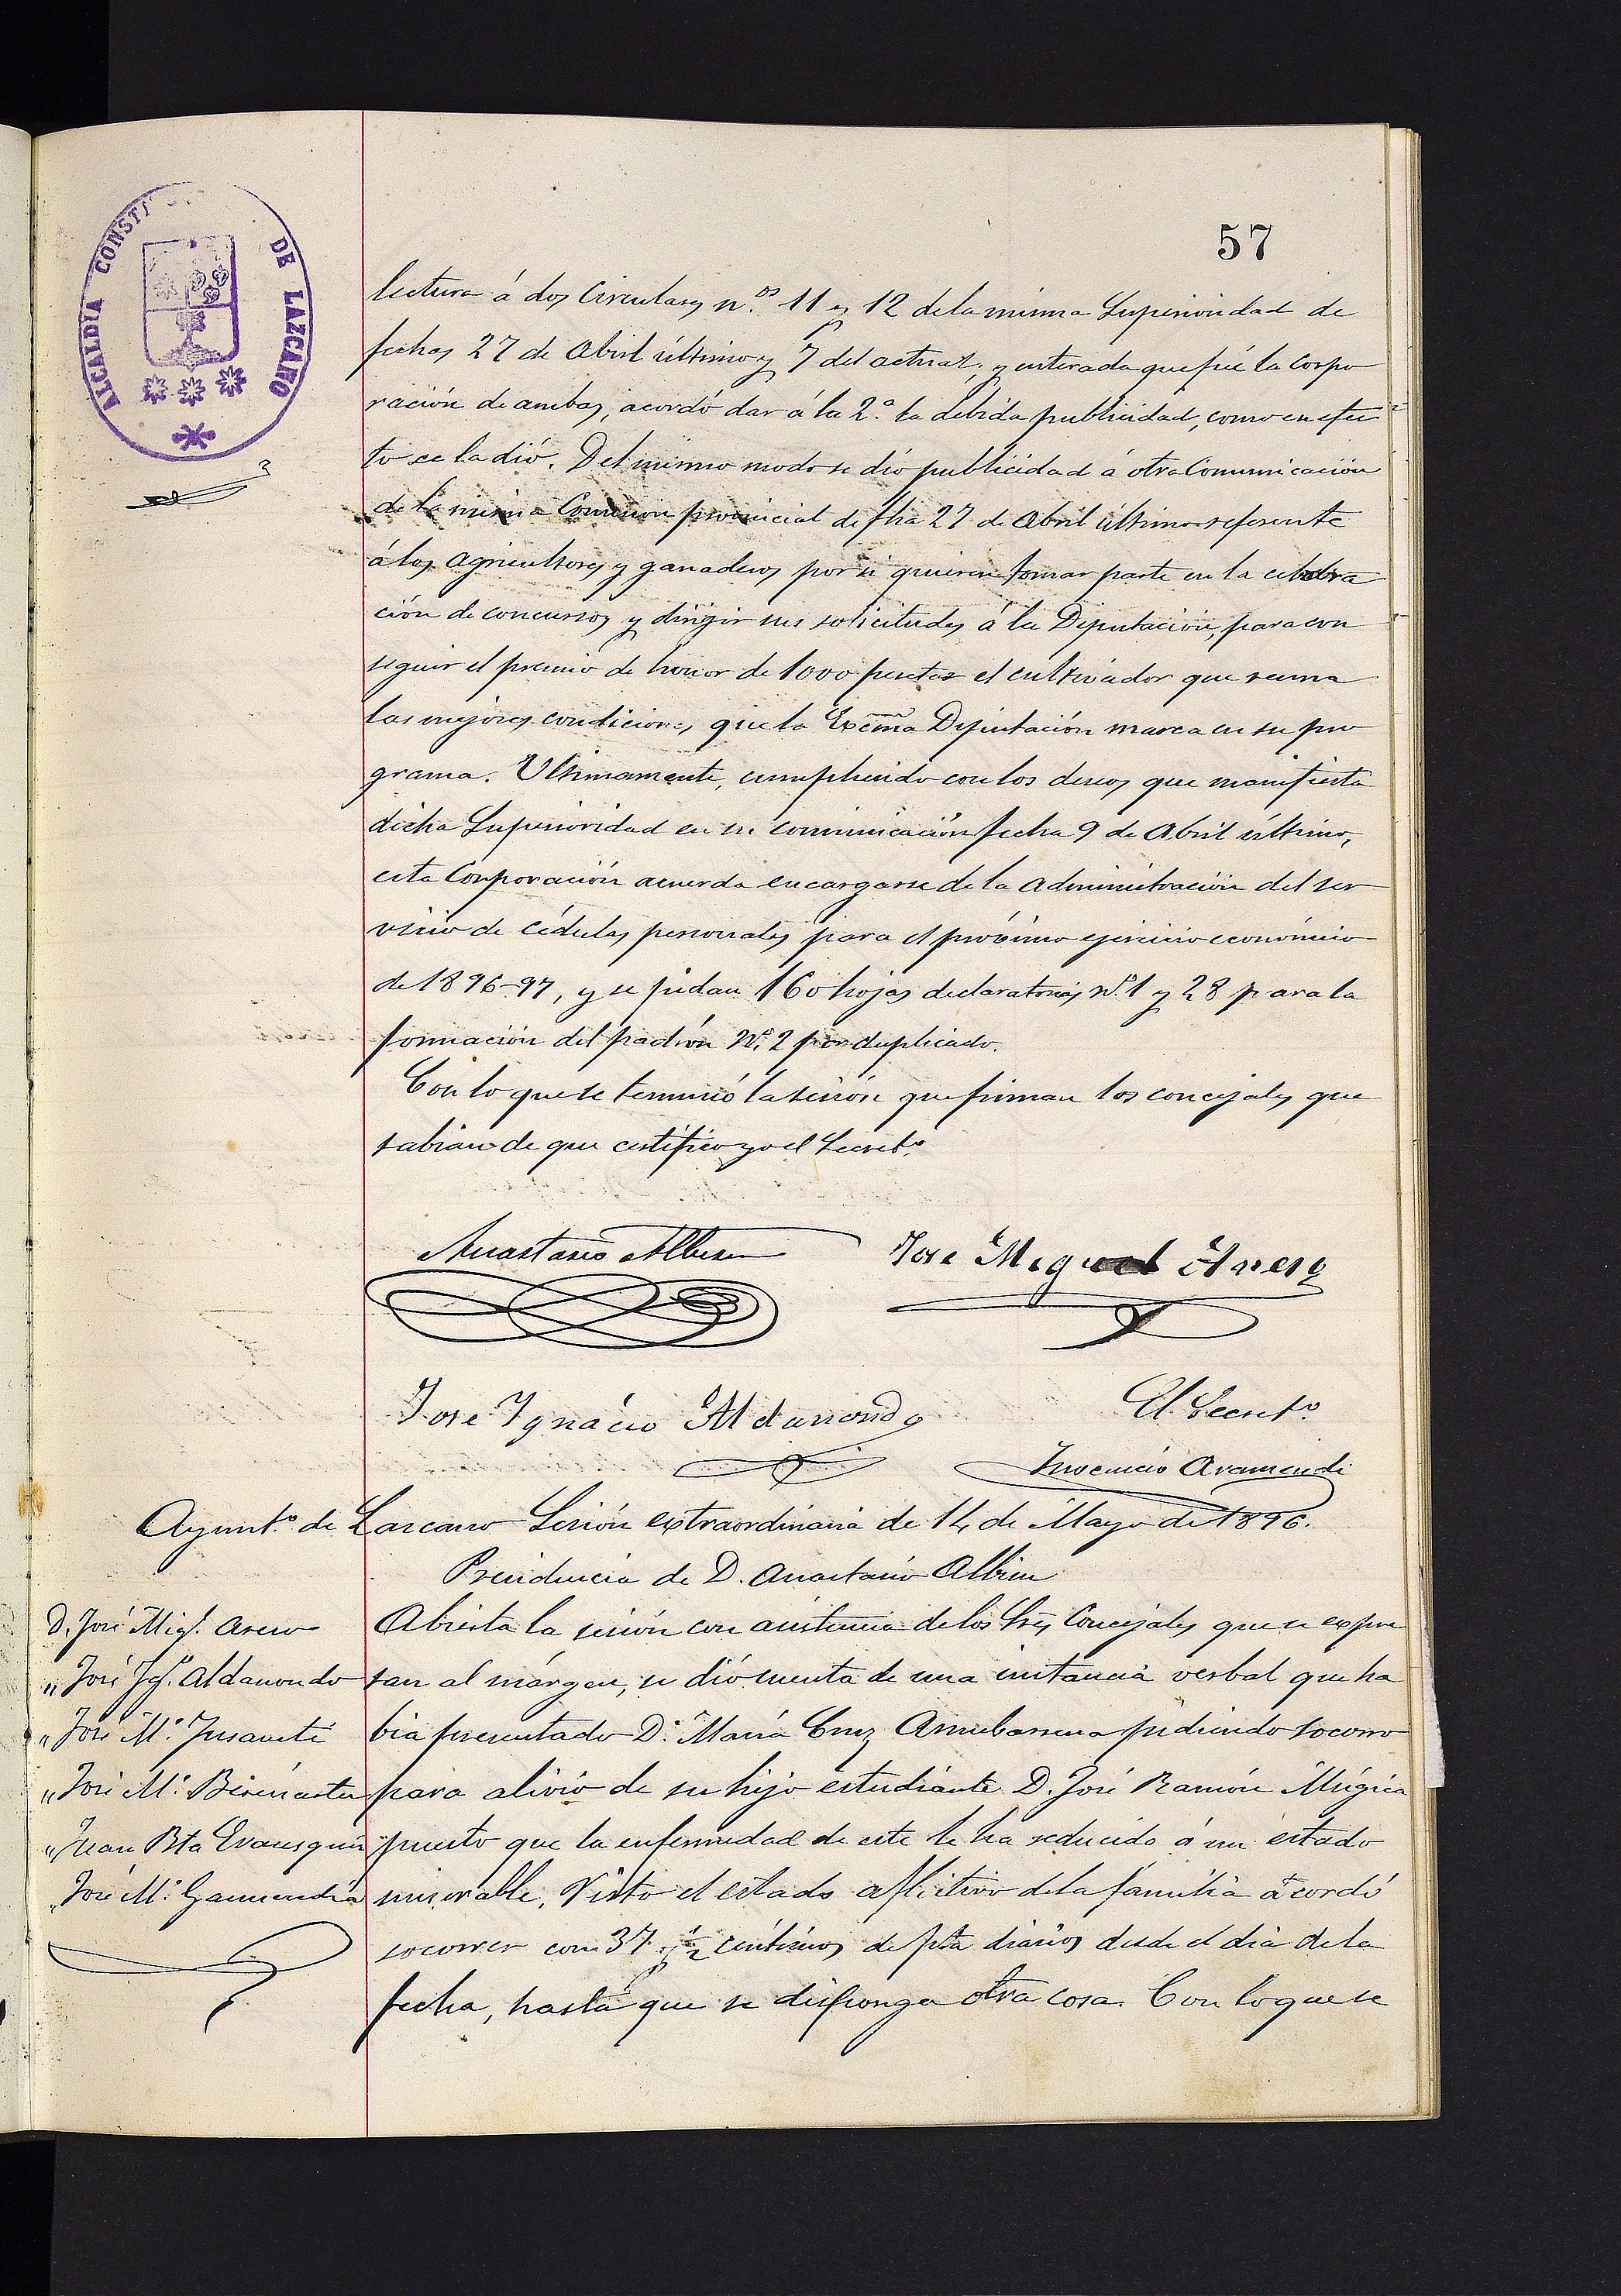 57
ALCALDIA CONSTI DE LAZCANO
lectura á dos Circulares n.os 11 y 12 de la misma Superioridad de
fechas 27 de Abril último y 7 del actual, y enterada que fué la corpo
ración de ambas, acordó dar á la 2.a la debida publicidad, como en efec
to se la dió. Del mismo modo se dió publicidad á otra Comunicación
de la misma Comision provincial de fha 27 de Abril último referente
á los agricultores y ganaderos por si quieren tomar parte en la celebra
ción de concursos y dirigir sus solicitudes á la Diputación, para con
seguir el premio de honor de 1000 pesetas el cultivador que reuna
las mejores condiciones que la Excma Diputación marca en su pro
grama. Ultimamente, cumpliendo con los deseos que manifiesta
dicha Superioridad en su comunicación fecha 9 de Abril último,
esta Corporación acuerda encargarse de la administración del ser
vicio de cédulas personales para el próximo ejercicio económico
de 1896-97, y se pidan 160 hojas declaratorias Nº 1 y 28 para la
formación del padrón Nº 2 por duplicado.
Con lo que se terminó la sesión que firman los concejales que
sabian de que certifico yo el Secret.o
Anastasio Albisu
Jose Miguel
Jose Ignacio Aldanondo
El Secret.o
Inocencio Aramendi
Ayunt.o de Lazcano Sesión extraordinaria de 14 de Mayo de 1896.
Presidencia de D. Anastasio Albisu
D. José Mig.l
" José Ig.o Aldanondo
" José M.a
" José M.a
" Juan Bta
" José M.a Garmendia
Abierta la sesión con asistencia de los Sres Concejales que se expre
san al márgen, se dió cuenta de una instancia verbal que ha
bia presentado D.a María Cruz pidiendo socorro
para alivio de su hijo estudiante D. José Ramón Múgica
puesto que la enfermedad de este le ha reducido á un estado
miserable. Visto el estado aflictivo de la família acordó
socorrer con 37 y 1/2 céntimos de pta diarios desde el dia de la
fecha, hasta que se disponga otra cosa. Con lo que se